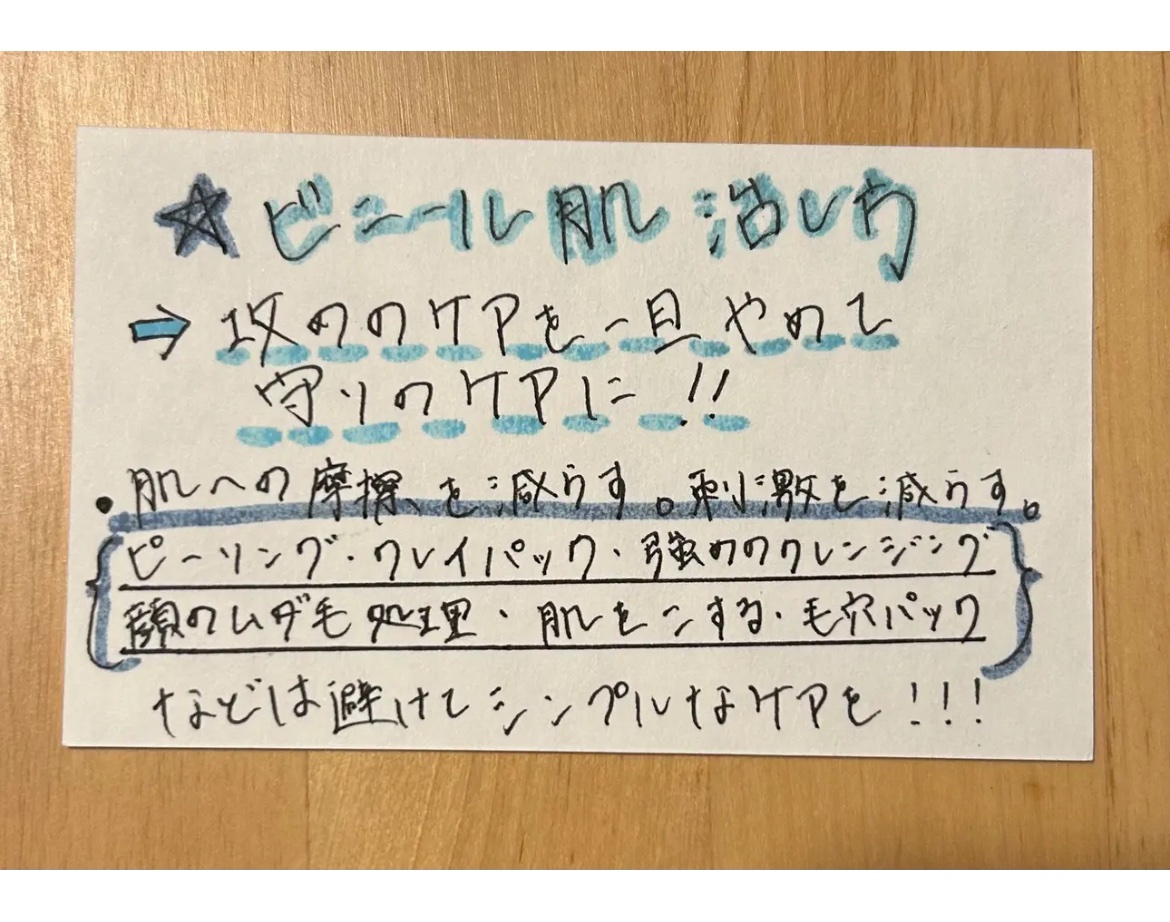 ☆ビニール肌 治し方
⇨ 攻めのケアを一旦やめて
守りのケアに!!
・肌への摩擦を減らす。刺激を減らす。
{ピーリング・クレイパック・強めのクレンジング
顔のムダ毛処理・肌をこする・毛穴パック}
などは避けてシンプルなケアを!!!